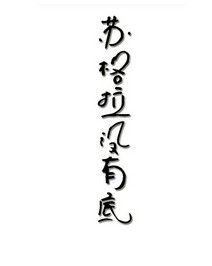 苏格拉没有底